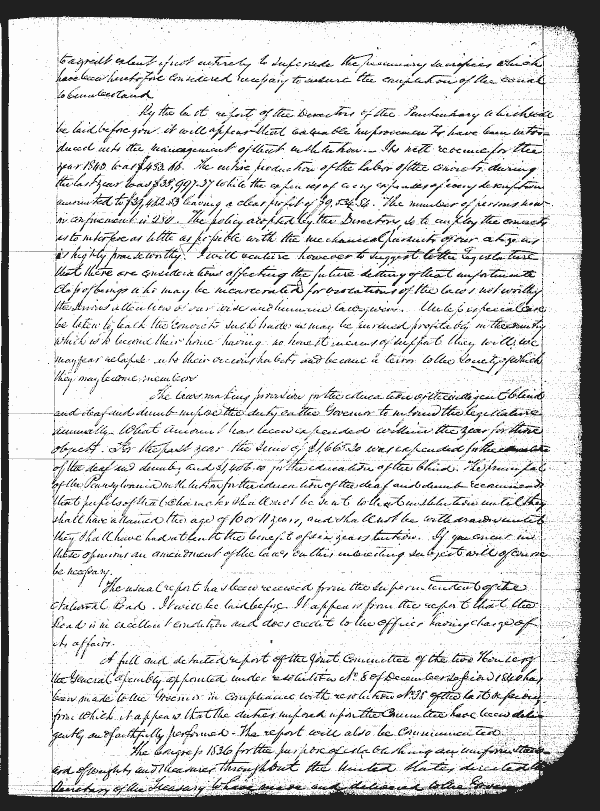 to a great extent if not entirely to supersede the pecuniary sacrifices which
have been heretofore considered necessary to ensure the completion of the canal
to
By the last report of the Directors of the Penitentiary which will
be laid before you it will appear that valuable improvements have been intro-
duced into the management of that institution - Its nett revenue for the
year 1840 was $483.66. The entire production of the labor of the convicts during
the last year was $38,997.37 while the expenses of every description
amounted to $29,462.83 leaving a clear profit of The number of persons now
in confinement is The policy adopted by the Directors, so to employ the convicts
as to interfere as little as possible with the mechanical pursuits of our citizens
is highly praiseworthy. I will venture however to suggest to the legislature
that there are considerations affecting the future destiny of that unfortunate
class of beings who may be incarcerated for violations of the laws not unworthy
the serious attention of our wise and humane lawgivers. Unless especial care
be taken to teach the convicts such trades as may be pursued profitably in the county
which is to become their home having no honest means of support they will we
may fear relapse into their vicious habits and become a terror to the society of which
they may become members
The laws making provision for the education of the indigent blind
and deaf and dumb impose the duty on the Governor to inform the legislature
annually what amount has been expended within the year for those
objects. For the past year the sum of was expended for the education
of the deaf and dumb, and for the education of the blind. The principal
of the Pennsylvania institution for the education of the deaf and dumb recommends
that pupils of that character shall not be sent to that institution until they
shall have attained the age of 10 or 11 years, and shall not be withdrawn until
they shall have had at least the benefit of six years tuition. If you concur in
these opinions an amendment of the laws on this interesting subject will of course
be necessary.
The usual report has been received from the Superintendent of the
National Road. It will be laid before. It appears from the report that the
Road is in excellent condition and does credit to the officer having charge of
its affairs.
A full and detailed report of the joint Committee of the two Houses of
the General Assembly appointed under resolution No. 8 of December Session 1840 has
been made to the Governor in compliance with resolution No. 35 of the last Session,
from which it appears that the duties imposed upon the Committee have been dili-
gently and faithfully performed - The report will also be communicated.
The Congress 1836 for the purpose of establishing an uniform stand-
ard of weights and measures throughout the United States directed the
Secretary of the Treasury to have made and delivered to the